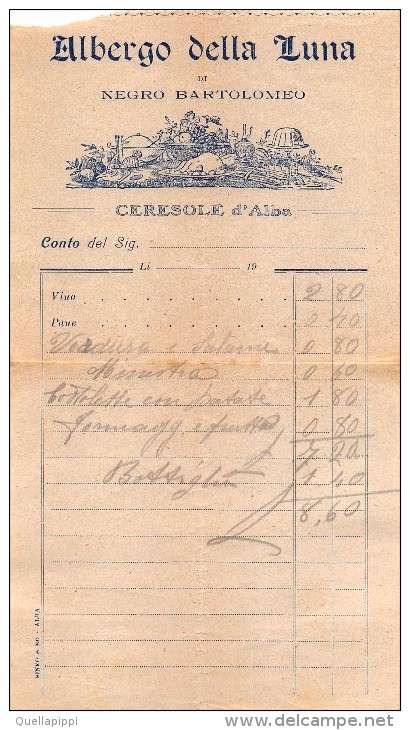 Albergo della Luna
DI
NEGRO BARTOLOMEO
CERESOLE d'Alba
Conto del Sig.
Li 19
Vino . . . . . . . 2 80
Pane . . . . . . . 0 40
Verdura e Salame 0 80
Minestra 0 60
Costolette con patate 1 80
formagg. e frutta 0 80
7 20
Bottiglia 1 40
8,60
- ALBA
Quellapippi
delcampe.net